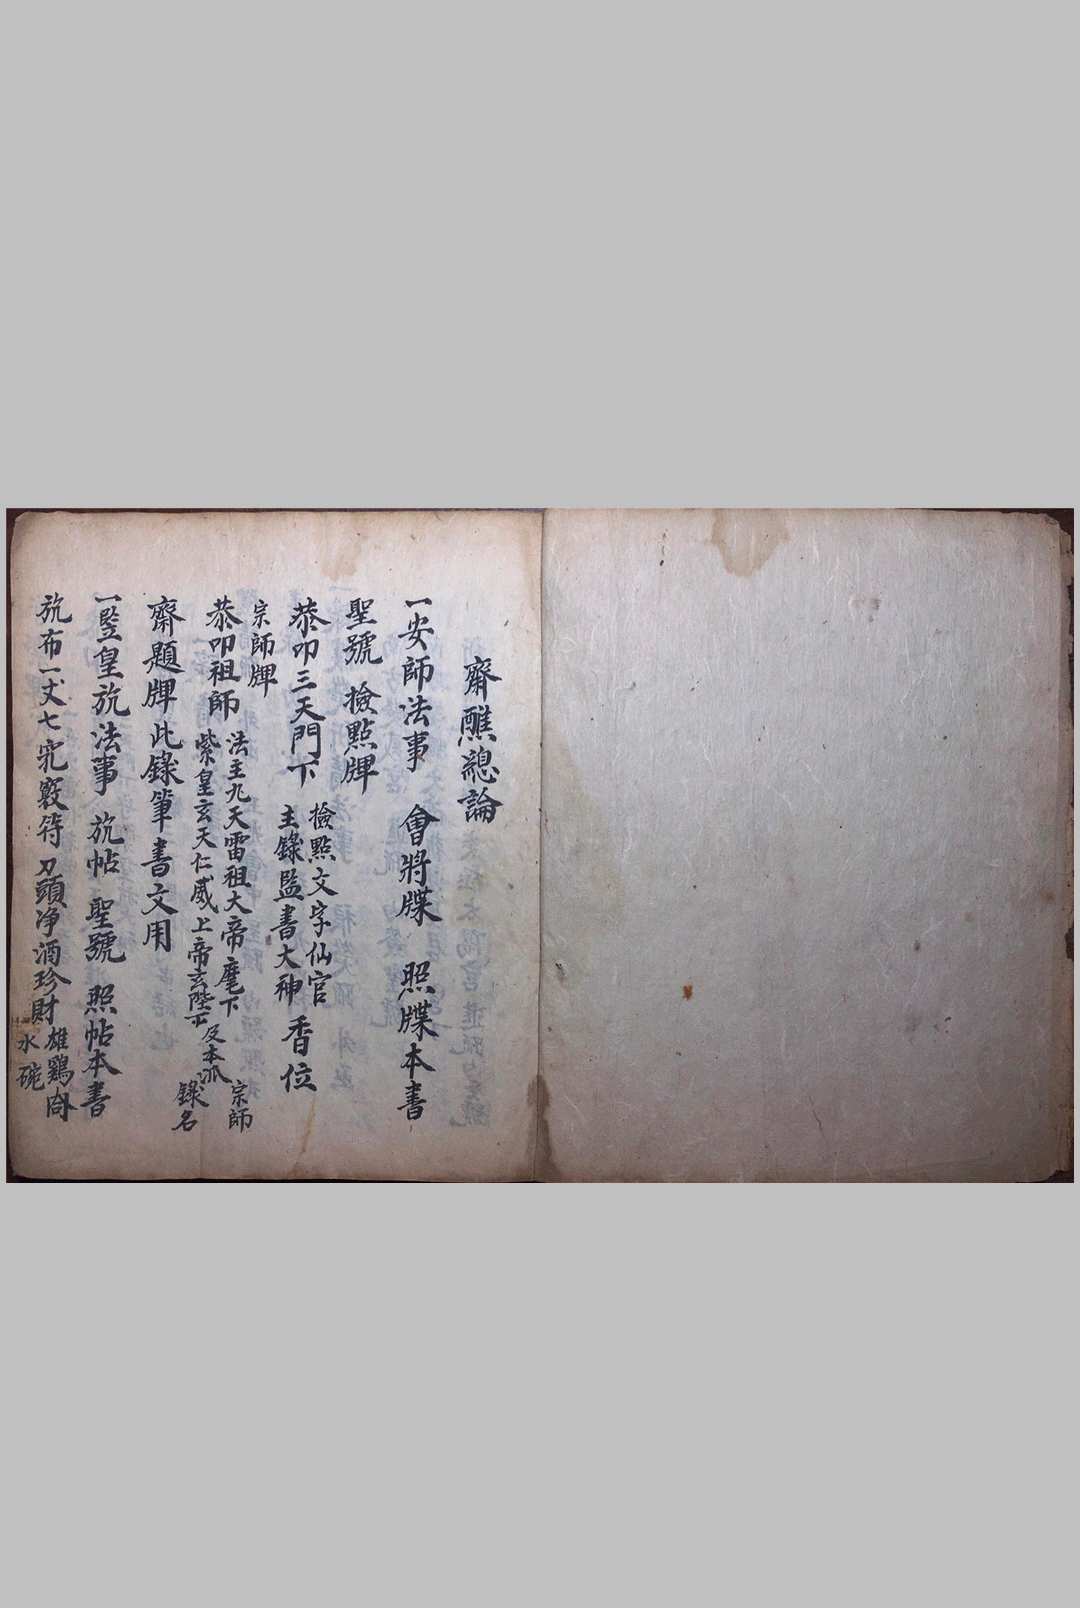 齋醮總論
一安師法事 會將牒 照牒本書
聖號 撿點牌
恭叩三天門下 撿點文字仙官 主錄監書大神 香位
宗師牌
恭叩祖師 法主九天雷祖大帝麾下 紫皇玄天仁威上帝玄陛下 及本派宗師 錄名
齋題牌此錄筆書文用
一竪皇旂法事 旂帖 聖號 照帖本書
旂布一丈七 符 刀頭净酒珍財 雄鷄 水碗